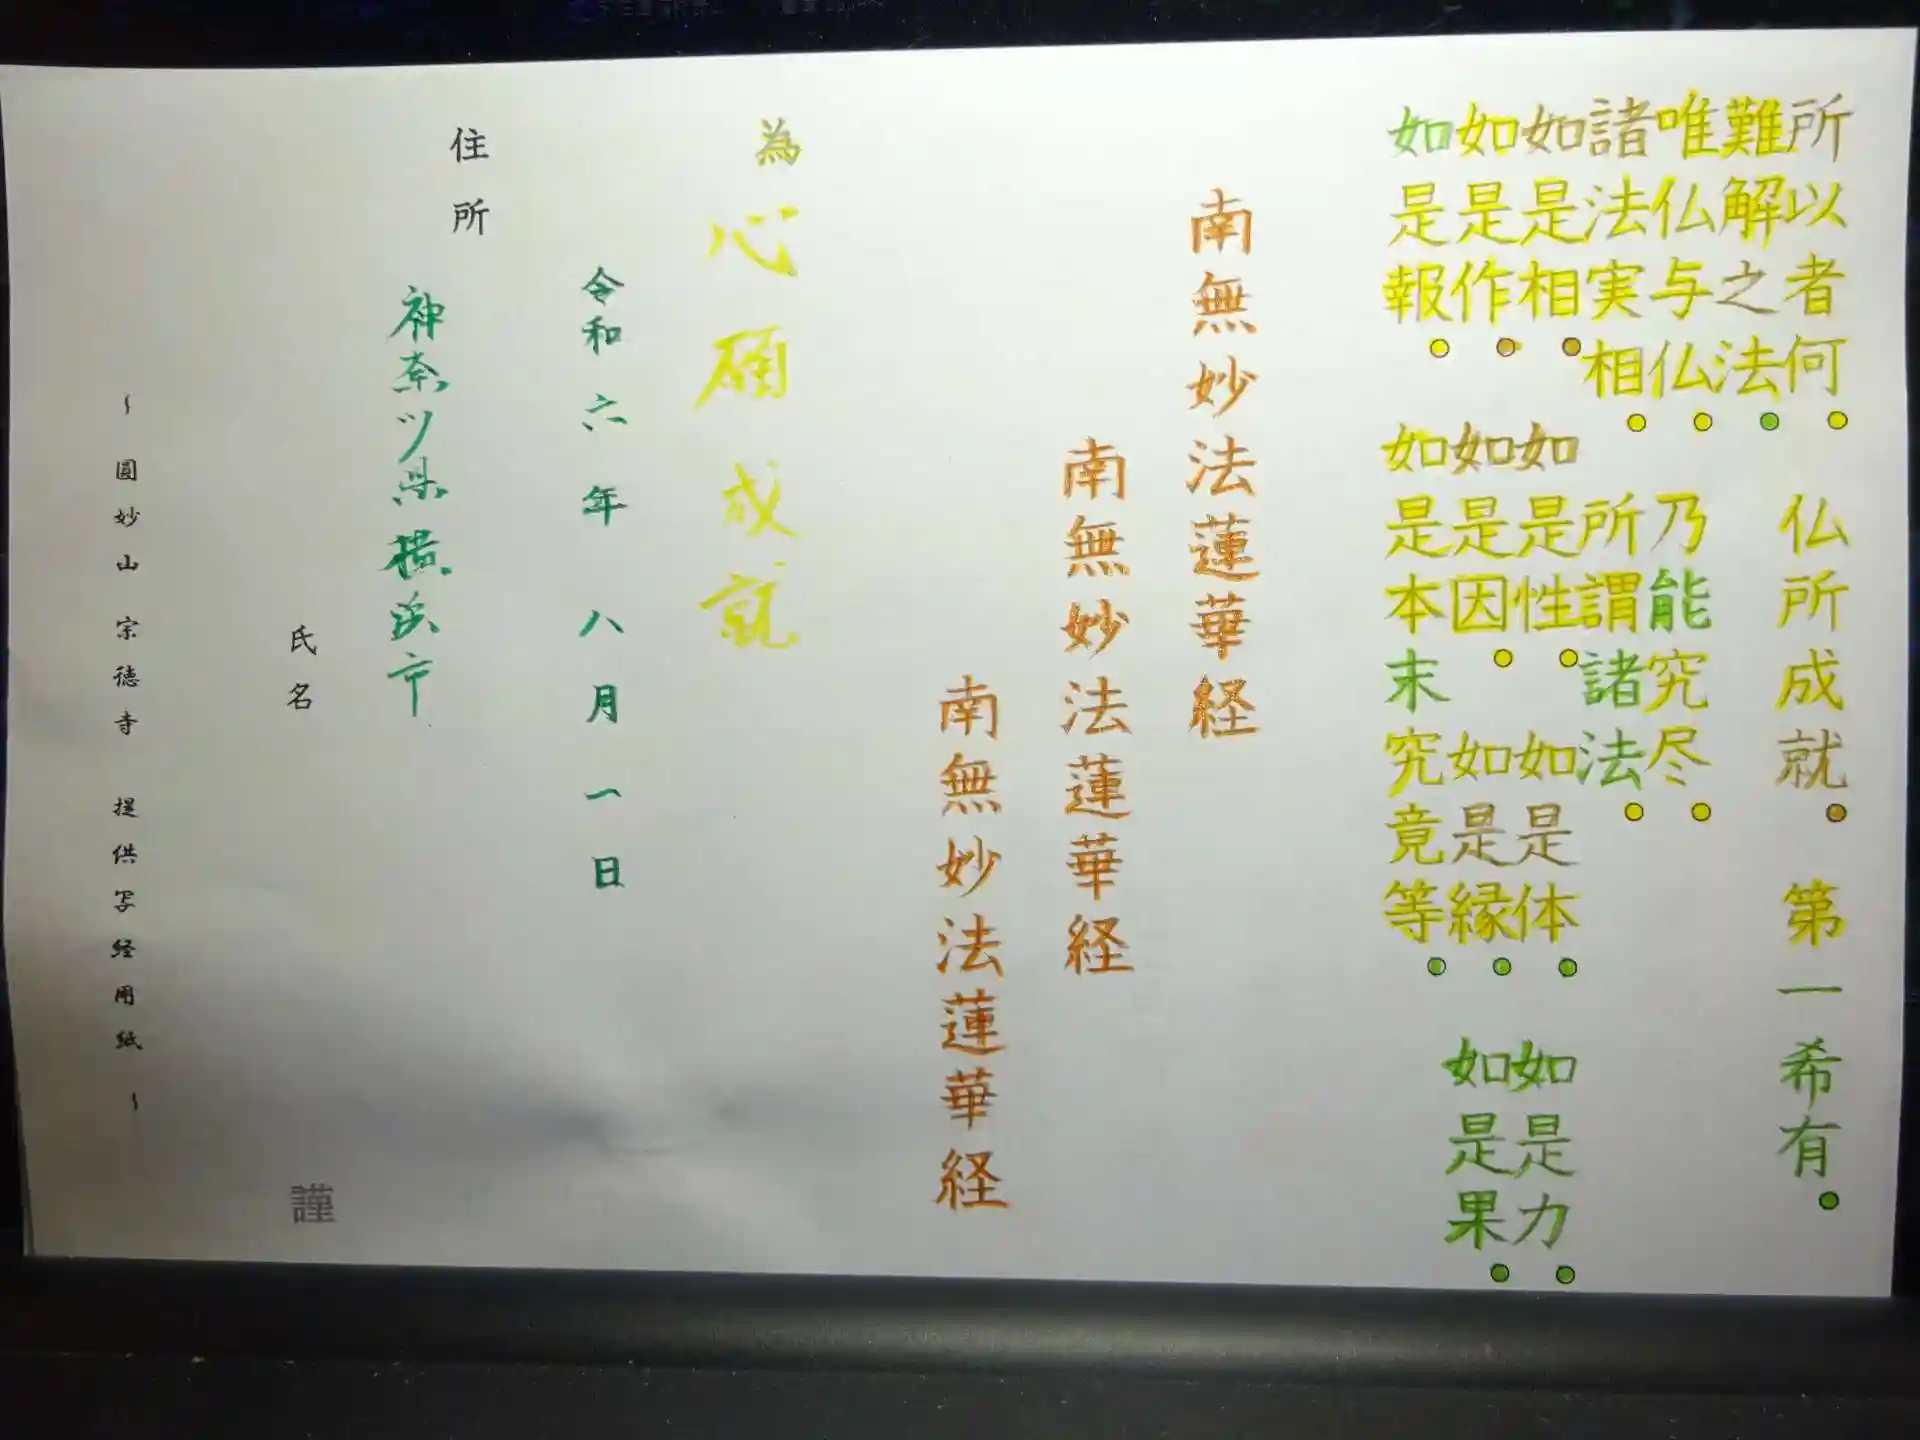 所以者何。仏所成就。第一希有。
難解之法。
唯仏与仏。乃能究尽。
諸法実相。所謂諸法。
如是相。如是性。如是体。如是力。
如是作。如是因。如是縁。如是果。
如是報。如是本末究竟等。
南無妙法蓮華経
南無妙法蓮華経
南無妙法蓮華経
為 心願成就
令和六年 八月一日
住所
神奈ツ県横浜市
氏名
謹
~ 圓妙山 宗徳寺 提供写経用紙 ~